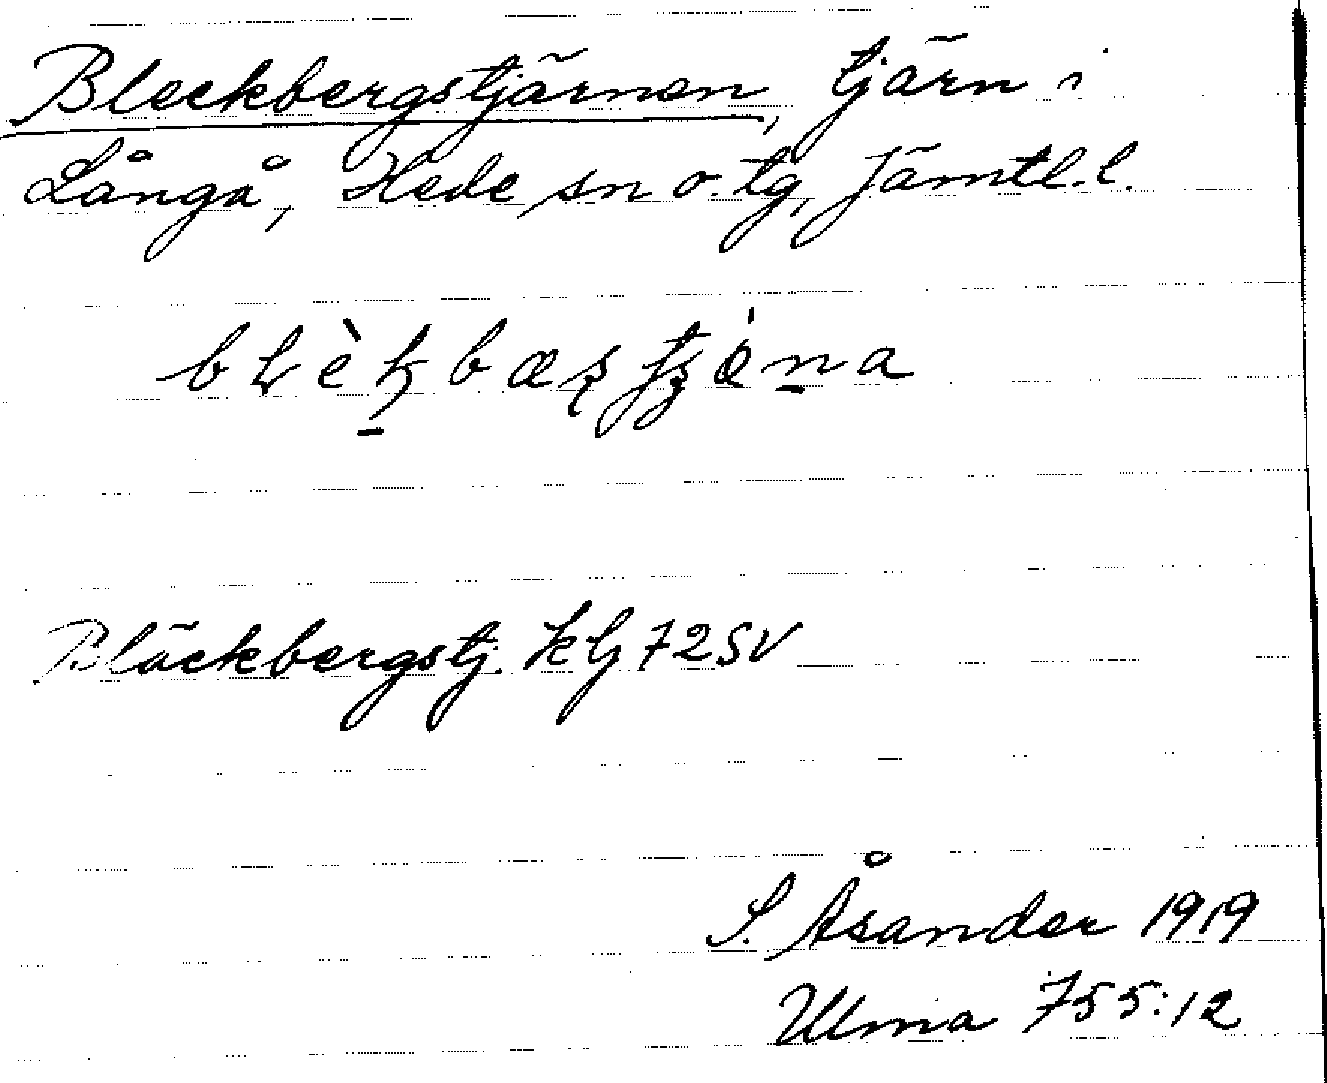 Bleckbergstjärnen, tjärn i
Långå, Hede sn o. tg, Jämtl. l.
Bläckbergstj. klg 72 SV
S. Åsander 1919
Ulma 755:12